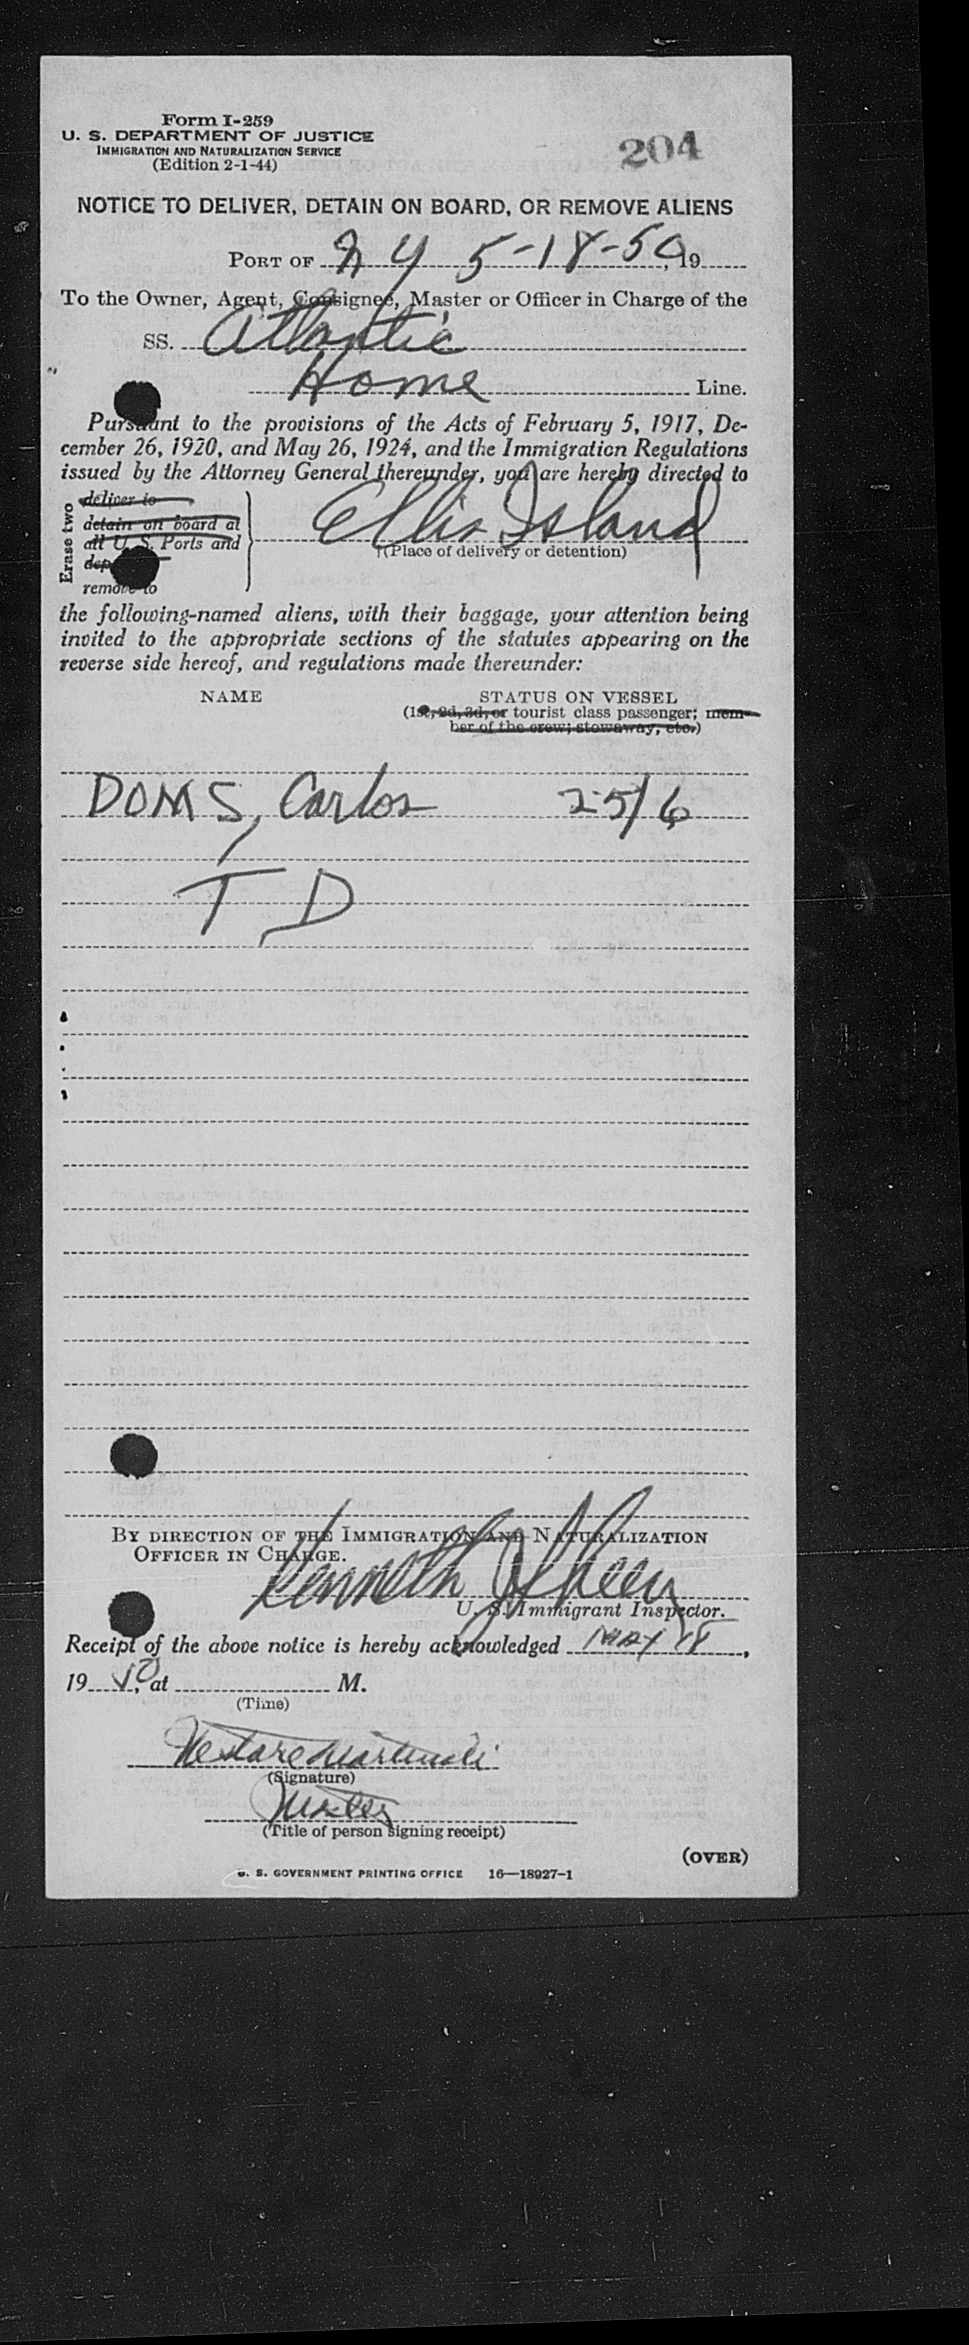 Form I-259
U. S. DEPARTMENT OF JUSTICE
IMMIGRATION AND NATURALIZATION SERVICE
(Edition 2-1-44)
204
NOTICE TO DELIVER, DETAIN ON BOARD, OR REMOVE ALIENS
PORT OF N Y 5-18-50, 19
To the Owner, Agent, Consignee, Master or Officer in Charge of the
SS. Atlantic
Home Line.
Pursuant to the provisions of the Acts of February 5, 1917, De-
cember 26, 1920, and May 26, 1924, and the Immigration Regulations
issued by the Attorney General thereunder, you are hereby directed to
Erase two
deliver to
detain on board at
all U. S. Ports and
remove to
Ellis Island
(Place of delivery or detention)
the following-named aliens, with their baggage, your attention being
invited to the appropriate sections of the statutes appearing on the
reverse side hereof, and regulations made thereunder:
NAME STATUS ON VESSEL
(1st, 2d, 3d, or tourist class passenger; mem-
ber of the crew; stowaway, etc.)
DOMS, Carlos 25/6
T D
BY DIRECTION OF THE IMMIGRATION AND NATURALIZATION
OFFICER IN CHARGE.
Kenneth
U. S. Immigrant Inspector.
Receipt of the above notice is hereby acknowledged MAY 18,
19 50, at M.
(Time)
(Signature)
(Title of person signing receipt)
(OVER)
U. S. GOVERNMENT PRINTING OFFICE 16—18927-1